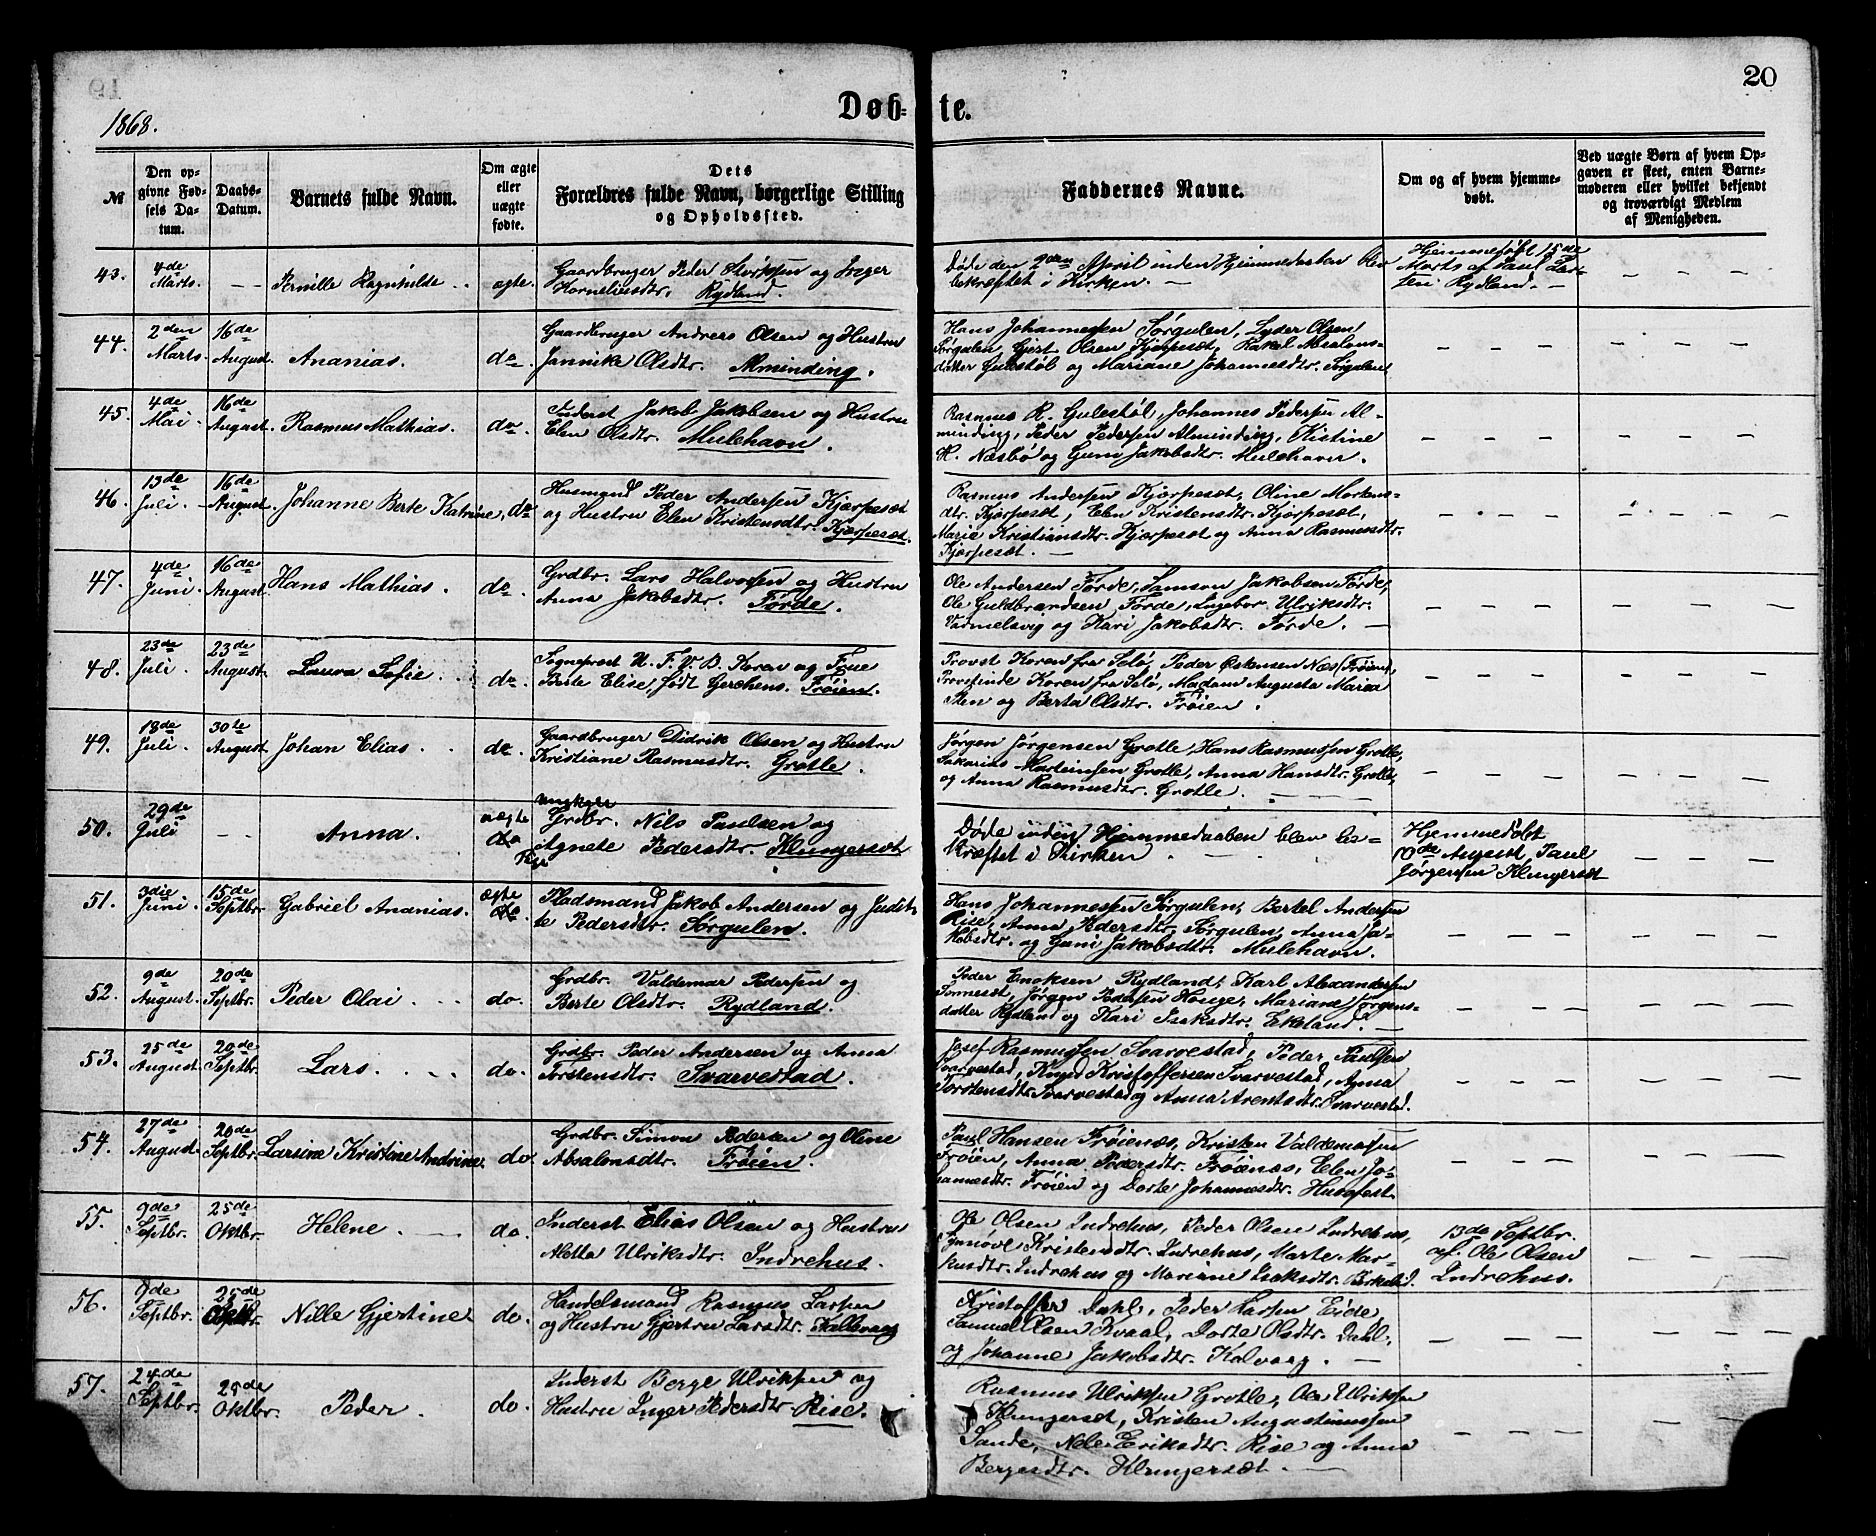 19
20
1868.
Døb-te.
№
Den op-
givne Fød-
sels Da-
tum.
Daabs-
Datum.
Barnets fulde Navn.
Om ægte
eller
uægte
fødte.
Dets
Forældres fulde Navn, borgerlige Stilling
og Opholdssted.
Faddernes Navne.
Om og af hvem hjemme-
døbt.
Ved uægte Børn af hvem Op-
gaven er skeet, enten Barne-
moderen eller hvilket bekjendt
og troværdigt Medlem
af Menigheden.
43. 4de Marts. — — Pernille Ragnhilde . . ægte.
Gaardbruger Peder Størksen og Inger
Korneliusdtr. Rydland.
Døde den 9den April inden Hjemmedaaben blev
bekræftet i Kirken. —
Hjemmedøbt 15de
Marts af Paul Lar-
sen Rydland. —
44. 2den Marts. 16de August. Ananias. do.
Gaardbruger Andreas Olsen og Hustru
Jannike Olsdtr. Alminding.
Hans Johannessen Sørgulen, Lyder Olsen
Sørgulen, Gjert Olsen Kjørpesæt, Rakel Absalons-
datter Gulestøl og Mariane Johannesdtr. Sørgulen
45. 4de Mai. 16de August. Rasmus Mathias. do.
Inderst Jakob Jakobsen og Hustru
Elen Olsdtr. Mulehavn.
Rasmus R. Gulestøl, Johannes Pedersen Al-
minding, Peder Pedersen Alminding, Kistine
H. Næsbø og Guni Jakobsdtr. Mulehavn.
46. 13de Juli. 16de August. Johanne Berte Katrine, do
Husmand Peder Andersen Kjørpesæt
og Hustru Elen Kristensdtr. Kjørpesæt.
Rasmus Andersen Kjørpesæt, Oline Mortens-
dtr. Kjørpesæt, Elen Kristensdtr. Kjørpesæt,
Marie Kristiansdtr. Kjørpesæt og Anna Rasmusdtr.
Kjørpesæt. —
47. 4de Juni. 16de August. Hans Mathias. do.
Grdbr. Lars Halvorsen og Hustru
Anna Jakobsdtr. Førde.
Ole Andersen Førde, Samson Jakobsen Førde,
Ole Guldbrandsen Førde, Ingebor. Ulriksdtr.
Vadmelsvig og Kari Jakobsdtr. Førde. —
48. 23de Juli. 23de August. Laura Sofie. do.
Sogneprest U. F. V. B. Koren og Frue
Berte Elise, født Gerchens. Frøien.
Provst Koren fra Selø, Peder Østensen Næs (Frøien),
Provstinde Koren fra Selø, Madam Augusta Maria
Sten og Berta Olsdtr. Frøien.
49. 18de Juli. 30te August. Johan Elias. . . do.
Gaardbruger Didrik Olsen og Hustru
Kristiane Rasmusdtr. Grotle.
Jørgen Jørgensen Grotle, Hans Rasmussen Grotle,
Sakarias Martinsen Grotle, Anna Hansdtr. Grotle,
og Anna Rasmusdtr. Grotle. —
50. 29de Juli — — Anna. uægte do
Ungkarl
Grdbr. Nils Paulsen og
Pige Agnete Pedersdtr. Klungersæt
Døde inden Hjemmedaaben blev be-
kræftet i Kirken. —
Hjemmedøbt
10de August Paul
Jørgensen Klungersæt
51. 3die Juni. 15de Septbr. Gabriel Ananias. ægte do
Pladsmand Jakob Andersen og Judit-
te Pedersdtr. Sørgulen.
Hans Johannessen Sørgulen, Bertel Andersen
Rise, Anna Pedersdtr. Sørgulen, Anna Ja-
kobsdtr. og Guni Jakobsdtr. Mulehavn.
52. 9de August. 20de Septbr. Peder Olai. . . do.
Grdbr. Valdemar Pedersen og
Berte Olsdtr. Rydland.
Peder Enoksen Rydland, Karl Alexandersen
Sønnesæt, Jørgen Pedersen Houge, Mariane Jørgens-
datter Rydland og Kari Isaksdtr. Ekeland. —
53. 25de August. 20de Septbr. Lars. . . . do.
Grdbr. Peder Andersen og Anna
Torstensdtr. Svarvestad.
Josef Rasmussen Svarvestad, Peder Paulsen
Svarvestad, Knud Kristoffersen Svarvestad, Anna
Torstensdtr. Svarvestad og Anna Arentsdtr. Svarvestad.
54. 27de August. 20de Septbr. Larsine Kristine Andrine. do.
Grdbr. Simon Pedersen og Oline
Absalonsdtr. Frøien.
Paul Hansen Frøienæs, Kristen Valdemarsen
Frøien, Anna Pedersdtr. Frøienæs, Elen Jo-
hannesdtr. Frøien og Dorte Johannesdtr. Husefest.
55. 9de Septbr. 25de Oktbr. Helene. do.
Inderst Elias Olsen og Hustru
Aletta Ulriksdtr. Indrehus.
Ole Olsen Indrehus, Peder Olsen Indrehus,
Synnøve Kristensdtr. Indrehus, Marte Mar-
kusdtr. Indrehus og Mariane Isaksdtr. Birkeland.
13de Septbr.
af Ole Olsen
Indrehus.
56. 9de Septbr. 25de Oktbr. Nille Gjertine do.
Handelsmand Rasmus Larsen
og Hustru Gjertru Larsdtr. Kallevaag
Kristoffer Dahl, Peder Larsen Eide,
Samuel Olsen Kvaal, Dorte Olsdtr. Dahl,
og Johanne Jakobsdtr. Kalvaag. —
57. 24de Septbr. 25de Oktbr. Peder. do.
Inderst Berge Ulriksen og
Hustru Inger Pedersdtr. Rise.
Rasmus Ulriksen Grotle, Ole Ulriksen
Klungersæt, Kristen Augustinussen
Sande, Nele Eriksdtr. Rise og Anna
Bergesdtr. Klungersæt. —